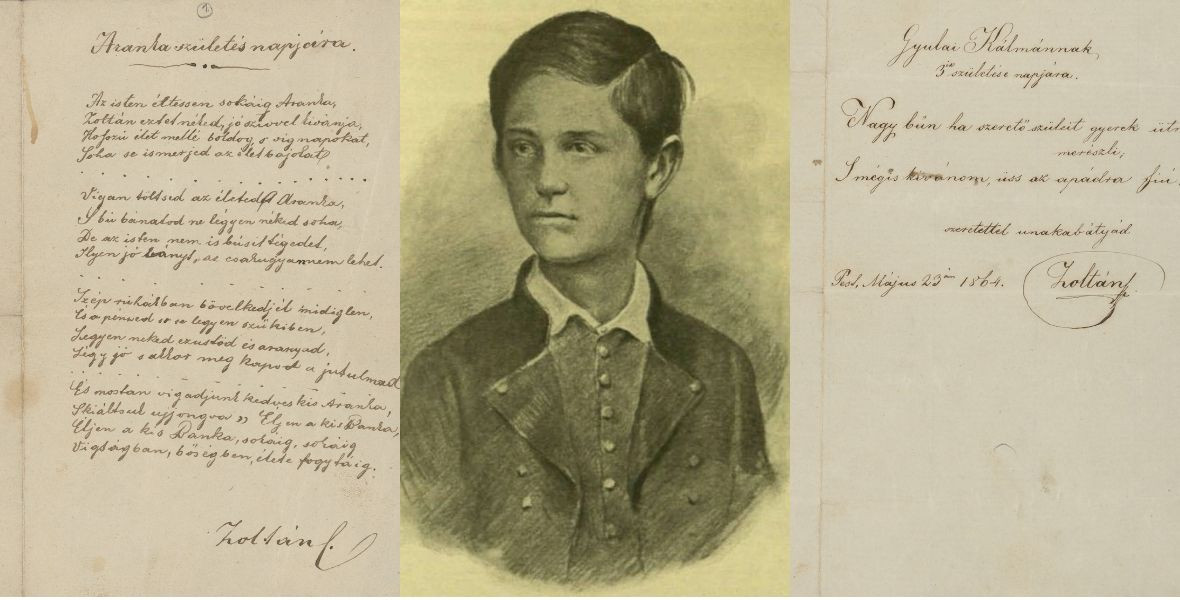 1
Aranka születés napjára.
Az isten éltessen sokáig Aranka,
Zoltán eztet néked, jó szivvel kivánja,
Hosszú élet mellé boldog, s vig napokat,
Soha se ismerjed az élet bajokat
Vigan töltsed az életed Aranka,
S bú bánatod ne légyen néked soha,
De az isten nem is búsit tégedet,
Ilyen jó leányt, az csakugyan nem lehet.
Szép ruhákban bövelkedjél mindiglen,
És a pénzed se legyen szükiben,
Legyen neked ezustöd és aranyad,
Légy jó s akkor meg kapod a jutulmad
És mostan vigadjunk kedves kis Aranka,
Skiáltsuk ujjongva „ Éljen a kis Panka,
Éljen a kis Panka, sokáig, sokáig
Vigságban, böségben, élete fogytáig.
Zoltán
Gyulai Kálmánnak
3ik születése napjára.
Nagy bün ha szerető szüleit gyerek ütn
merészli;
S mégis kivánom, üss az apádra fiú.
szeretettel unakabátyád
Pest, Május 23án 1864.
Zoltán